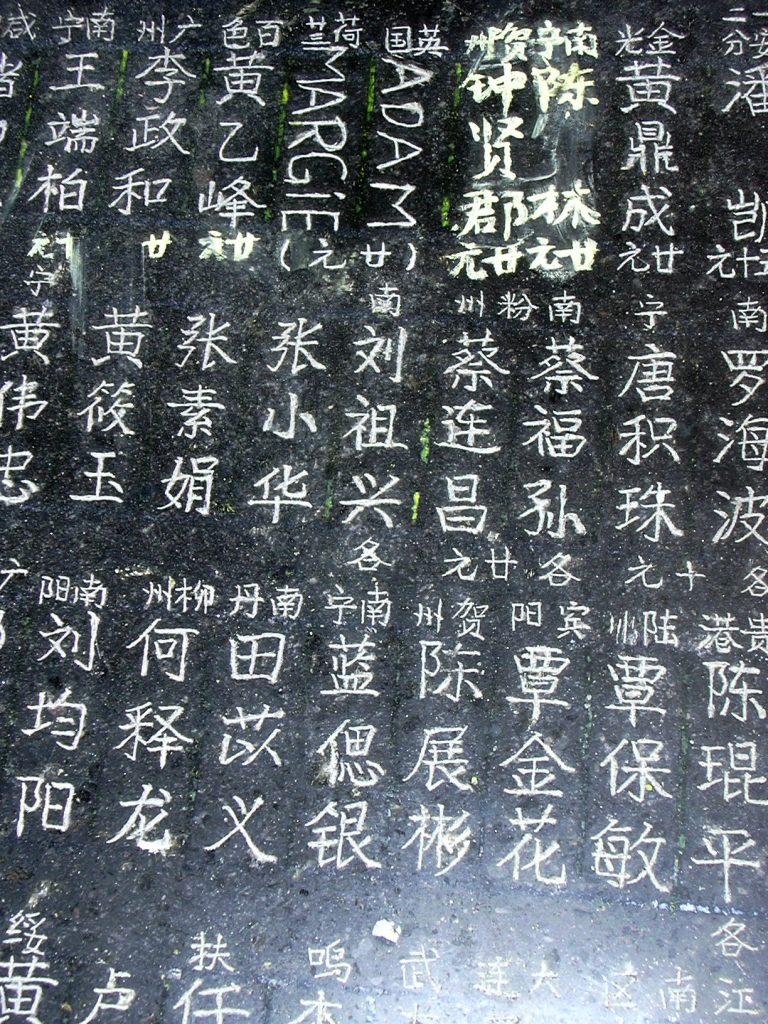 潘
五十元
金光
黄鼎成
廿元
南宁
陈林
廿元
贺州
钟贤郡
廿元
英国
ADAM
荷兰
MARGiE
(廿元)
百色
黄乙峰
廿元
广州
李政和
廿
南宁
王端柏
十元
南宁
罗海波
唐积珠
各十元
南粉州
蔡福孙
蔡连昌
各廿元
南宁
刘祖兴
张小华
张素娟
黄筱玉
黄伟忠
各
贵港
陈琨平
陆川
覃保敏
宾阳
覃金花
贺州
陈展彬
南宁
蓝偲银
南丹
田苡义
柳州
何释龙
南阳
刘均阳
各
江南区
大连
武鸣
扶绥
卢
黄